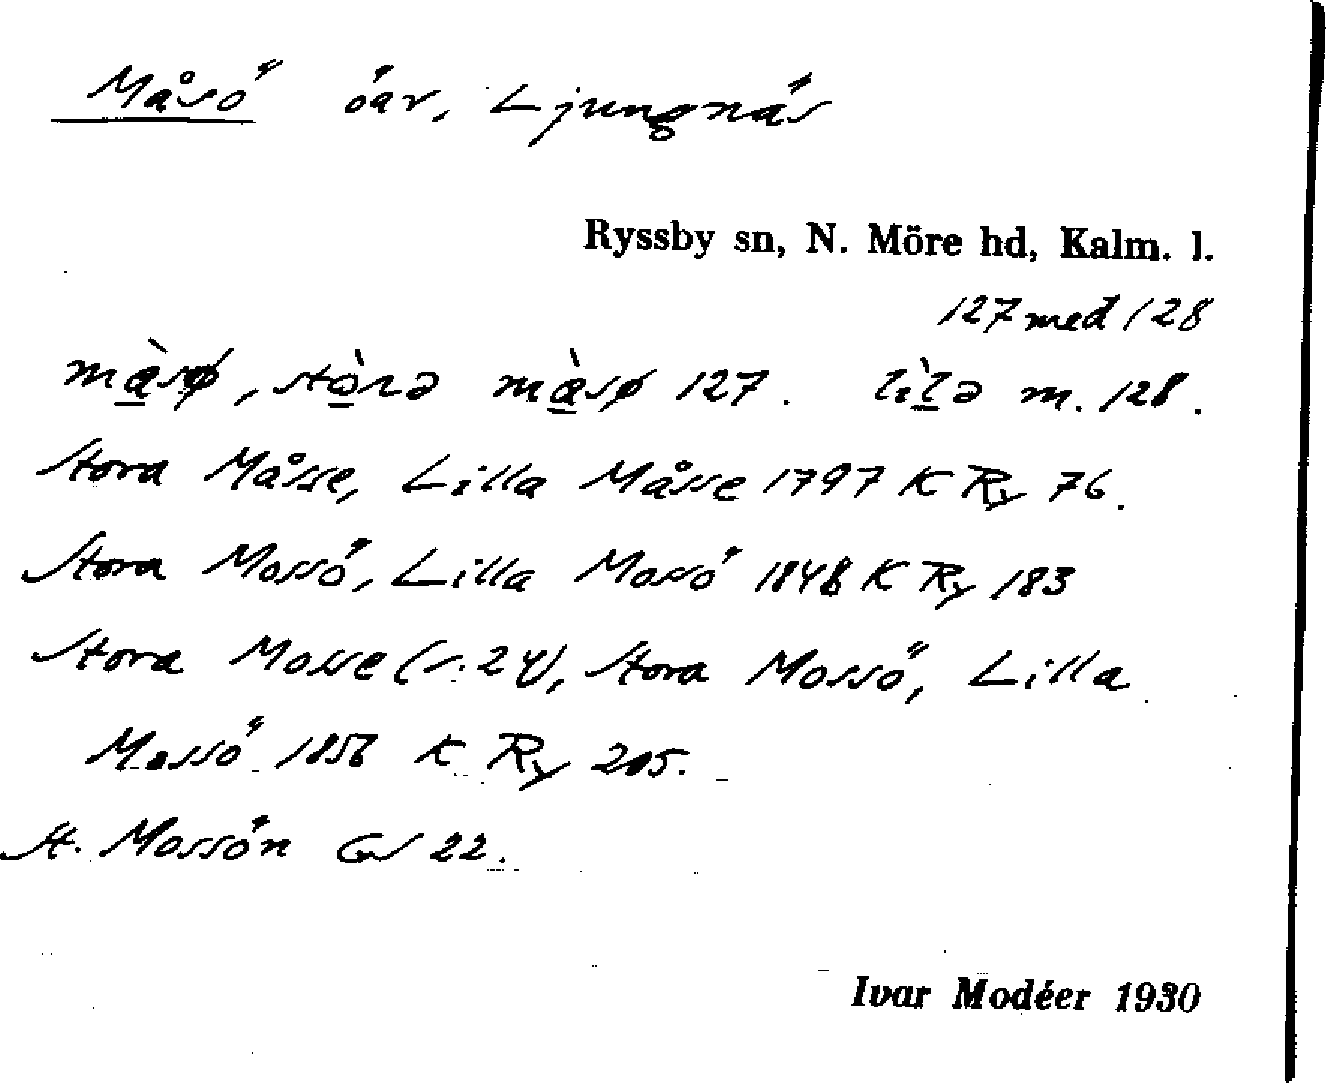 Måsö öar, Ljungnäs
Ryssby sn, N. Möre hd, Kalm. l.
127 med 128
mà̱sø, stò̱rə mà̱sø 127. lìḻə m. 128.
Stora Måsse, Lilla Måsse 1797 K Ry 76.
Stora Mossö, Lilla Mossö 1848 K Ry 183
Stora Mosse (s. 24), Stora Mossö, Lilla
Mossö 1856 K Ry 205.
St. Mossön GS 22.
Ivar Modéer 1930